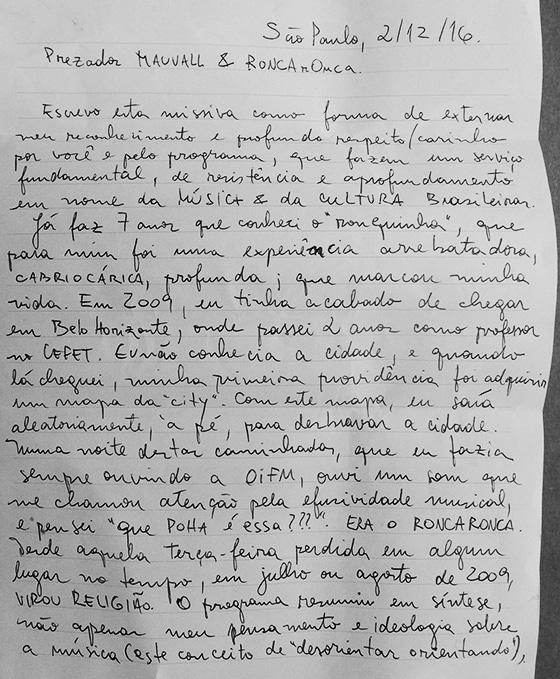 São Paulo, 2/12/16.
Prezados MAUVALL & RONCARONCA.
Escrevo esta missiva como forma de externar
meu reconhecimento e profundo respeito/carinho
por você e pelo programa, que fazem um serviço
fundamental, de resistência e aprofundamento
em nome da MÚSICA & da CULTURA Brasileiras.
Já faz 7 anos que conheci o "ronquinha", que
para mim foi uma experiência arrebatadora,
CABRIOCÁRICA, profunda; que marcou minha
vida. Em 2009, eu tinha acabado de chegar
em Belo Horizonte, onde passei 2 anos como professor
no CEFET. Eu não conhecia a cidade, e quando
lá cheguei, minha primeira providência foi adquirir
um mapa da "city". Com este mapa, eu saía
aleatoriamente, a pé, para desbravar a cidade.
Numa noite destas caminhadas, que eu fazia
sempre ouvindo a OiFM, ouvi um som que
me chamou atenção pela efusividade musical,
e pensei "que POHA é essa???". ERA o RONCARONCA.
Desde aquela terça-feira perdida em algum
lugar no tempo, em julho ou agosto de 2009,
VIROU RELIGIÃO. O programa resumiu em síntese,
não apenas meu pensamento e ideologia sobre
a música (este conceito de "desorientar orientando"),